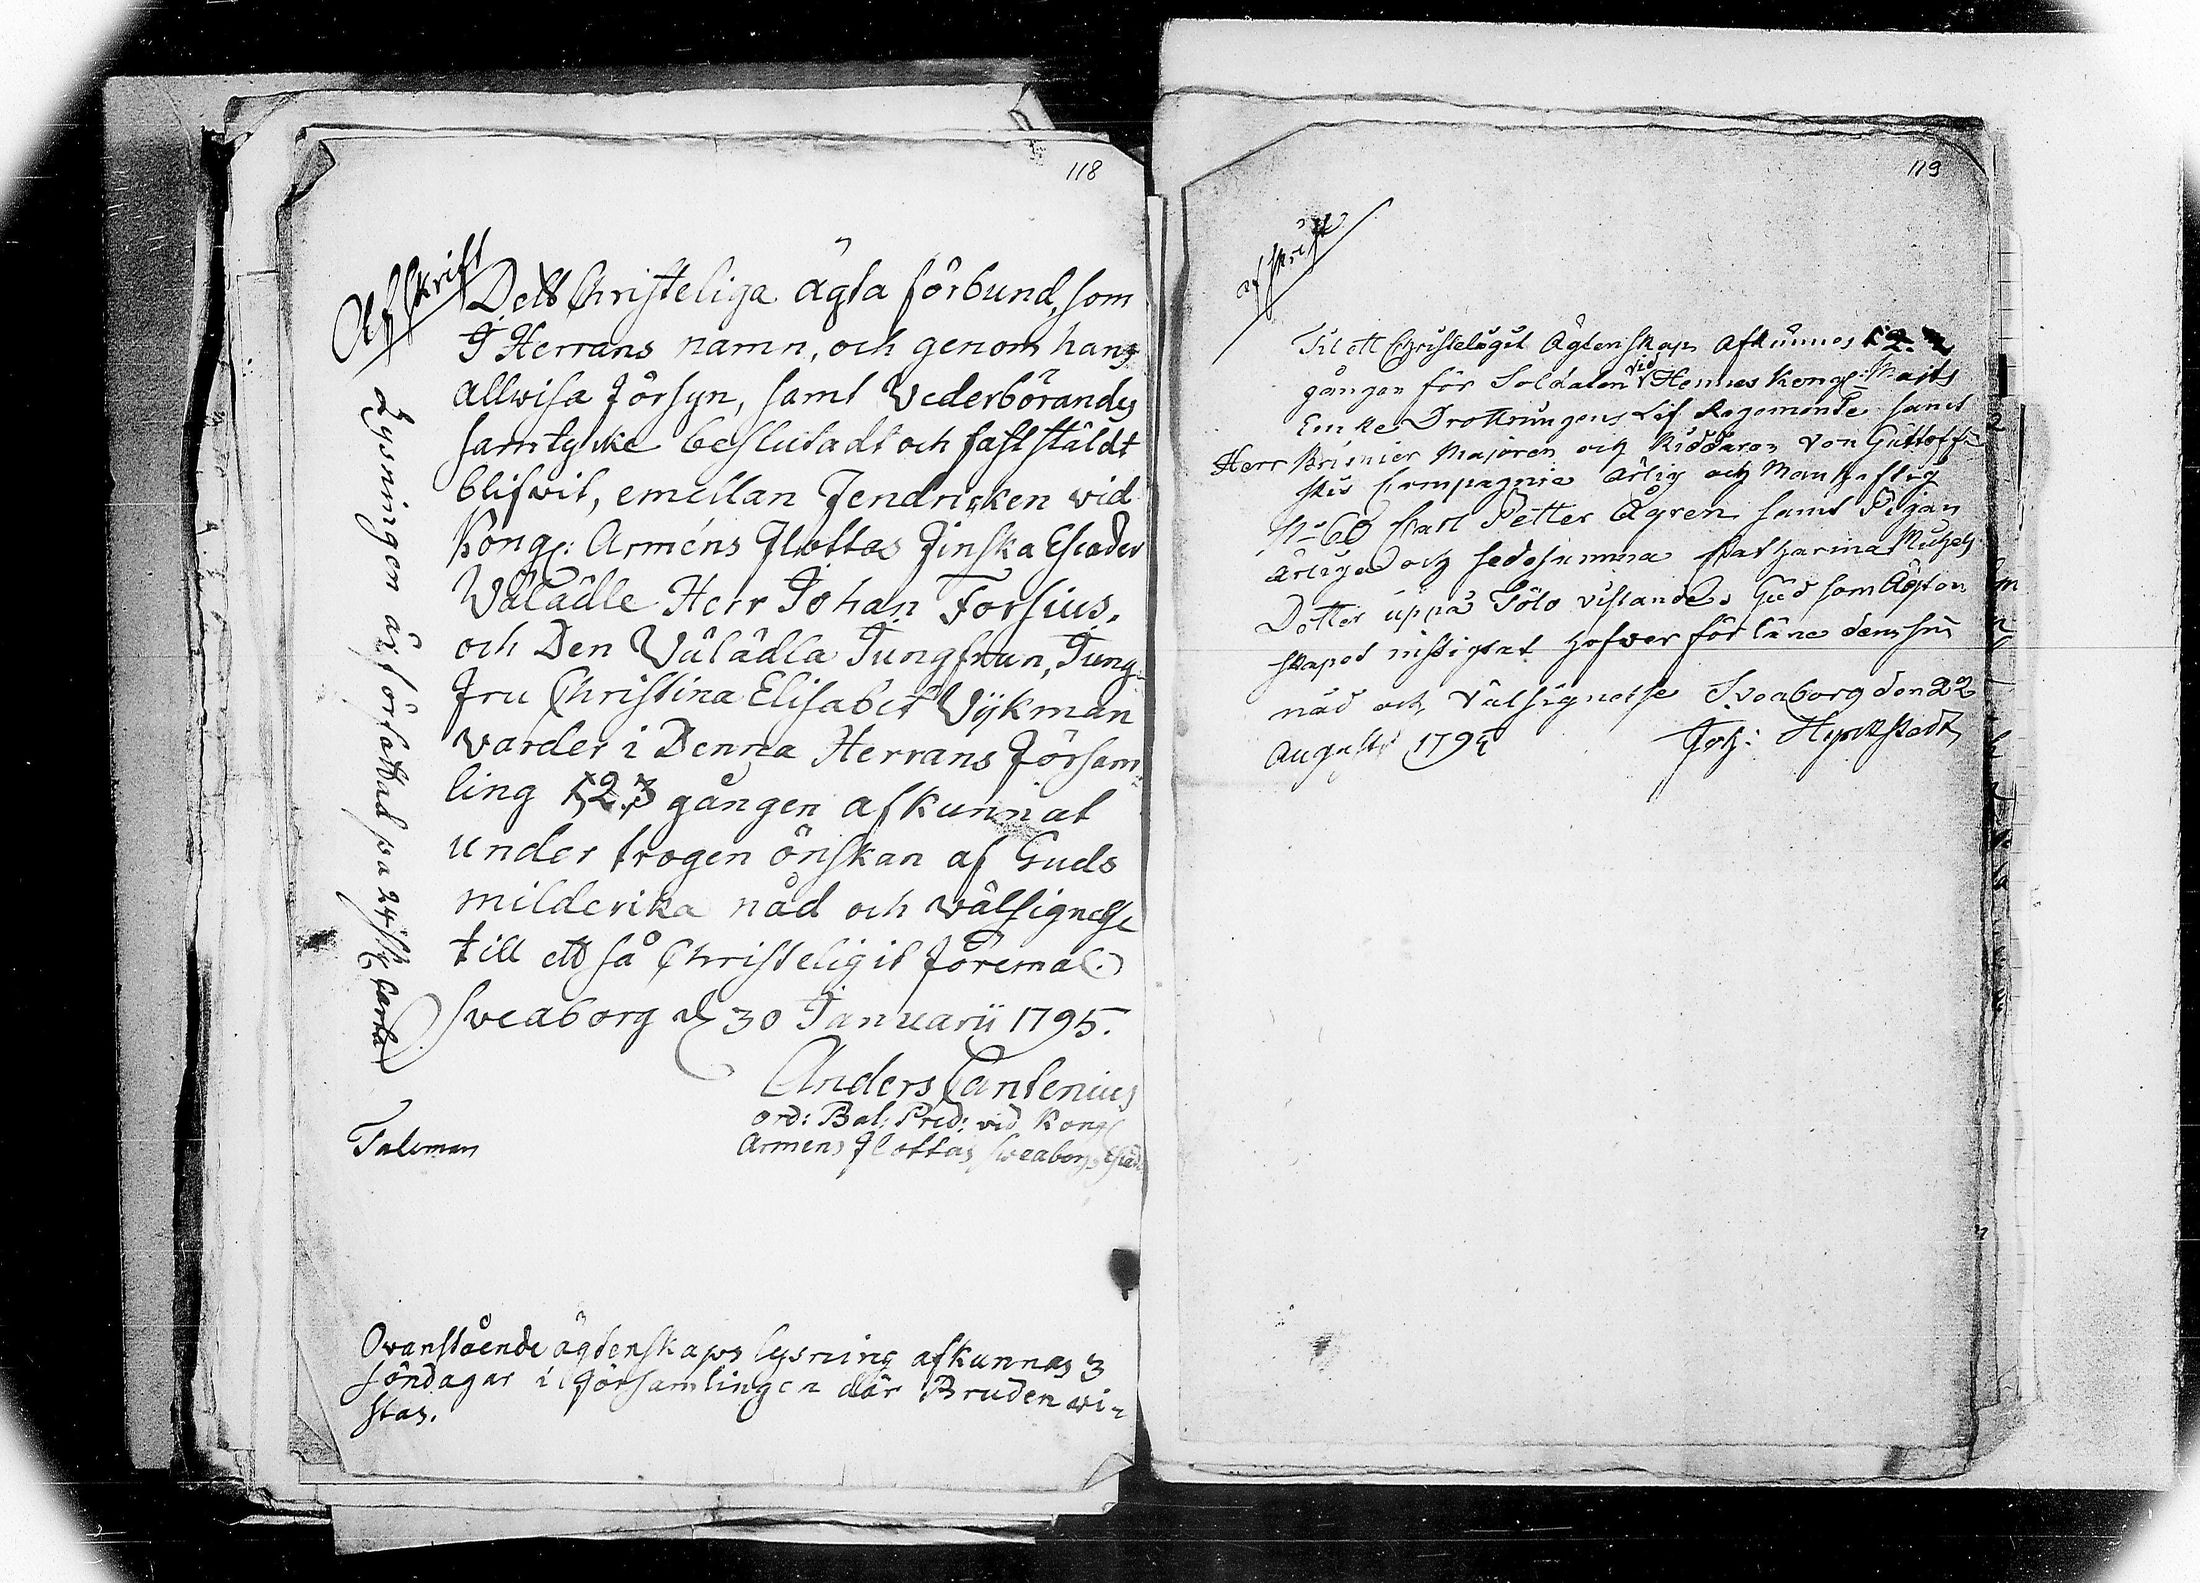 118
Afskrift
Dett Christeliga ägta förbund, som
I Herrans namn, och genom hans
allwisa Försyn, samt Vederbörandes
samtycke beslutadt och fastställdt
blifvit, emellan Fendricken vid
Kongl: Arméns Flottas Finska Escader
Välädle Herr Johan Forsius.
och Den Välädla Jungfrun, Jung-
Fru Christina Elisabet Wijkman
varder i Denna Herrans Försam-
ling 1, 2, 3 gången afkunnat
under trogen önskan af Guds
milderika nåd och wälsignelse
till ett så Christeligit Föremål.
Sveaborg d 30 Januarii 1795.
Anders Cantenius
ord: Bat: Pred: vid Kongl
Armens Flottas Sveaborgs Escad
Lysningen är författad på 24 sk Carta
Taleman
Ovanstående ägtenskaps lysning afkunnas 3
söndagar i Församlingen där Bruden wi-
stas.
119
afskrift
Til ett Christeligit Ägtenskap afkunnes 1 2
gången för Soldaten vid Hennes Kongl: Maits
Enke Drottningens Lif Regemente samt
Herr Premier Majoren och Riddaren von
skis Compagnie ärlig och Manhaftig
No 60 Carl Petter Ågren samt Pigan
ärliga och sedesamma Catharina Michels
Dotter uppå Tölö vistande. Gud som Ägten
skapet instigtat hafver förläne dem sin
nåd och Välsignelse Sveaborg den 22
Augusti 1794
Joh: